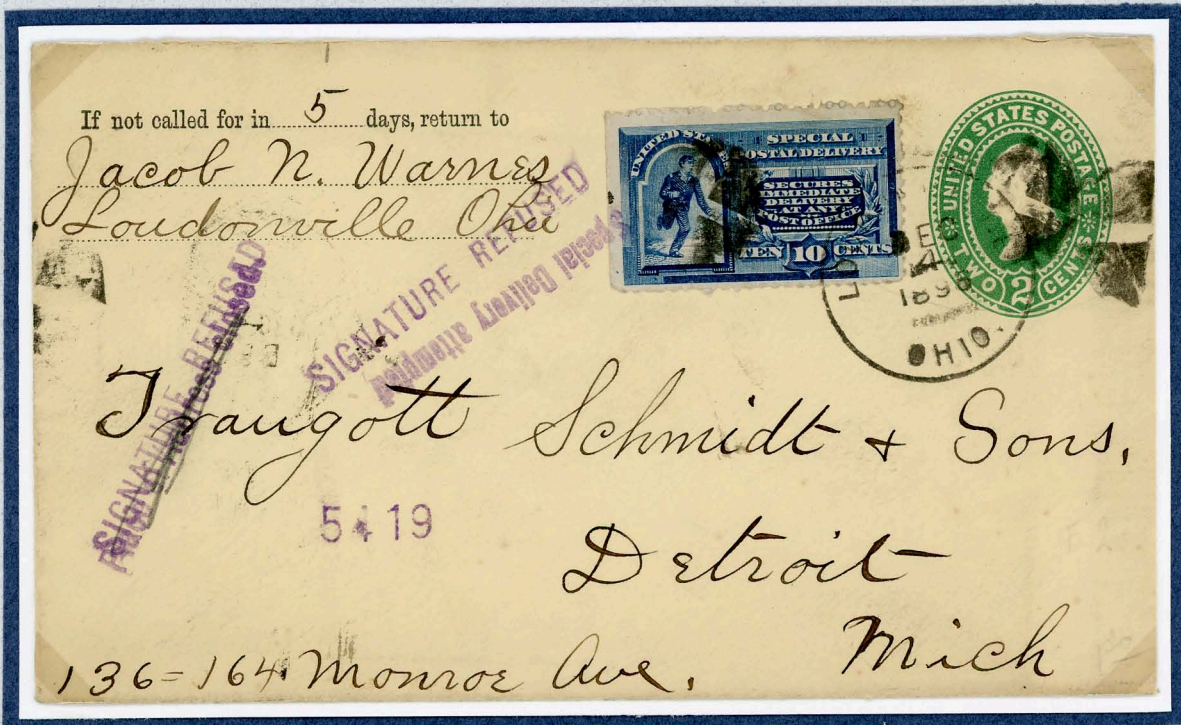 If not called for in 5 days, return to
Jacob N. Warnes
Loudonville Ohio
UNITED STATES
SPECIAL
POSTAL DELIVERY
SECURES
IMMEDIATE
DELIVERY
AT ANY
POST OFFICE
TEN 10 CENTS
UNITED STATES POSTAGE
TWO 2 CENTS
DEC
4
OHIO.
SIGNATURE REFUSED
Special Delivery attempted
SIGNATURE REFUSED
Traugott Schmidt + Sons,
5419
Detroit
Mich
136=164 Monroe Ave.